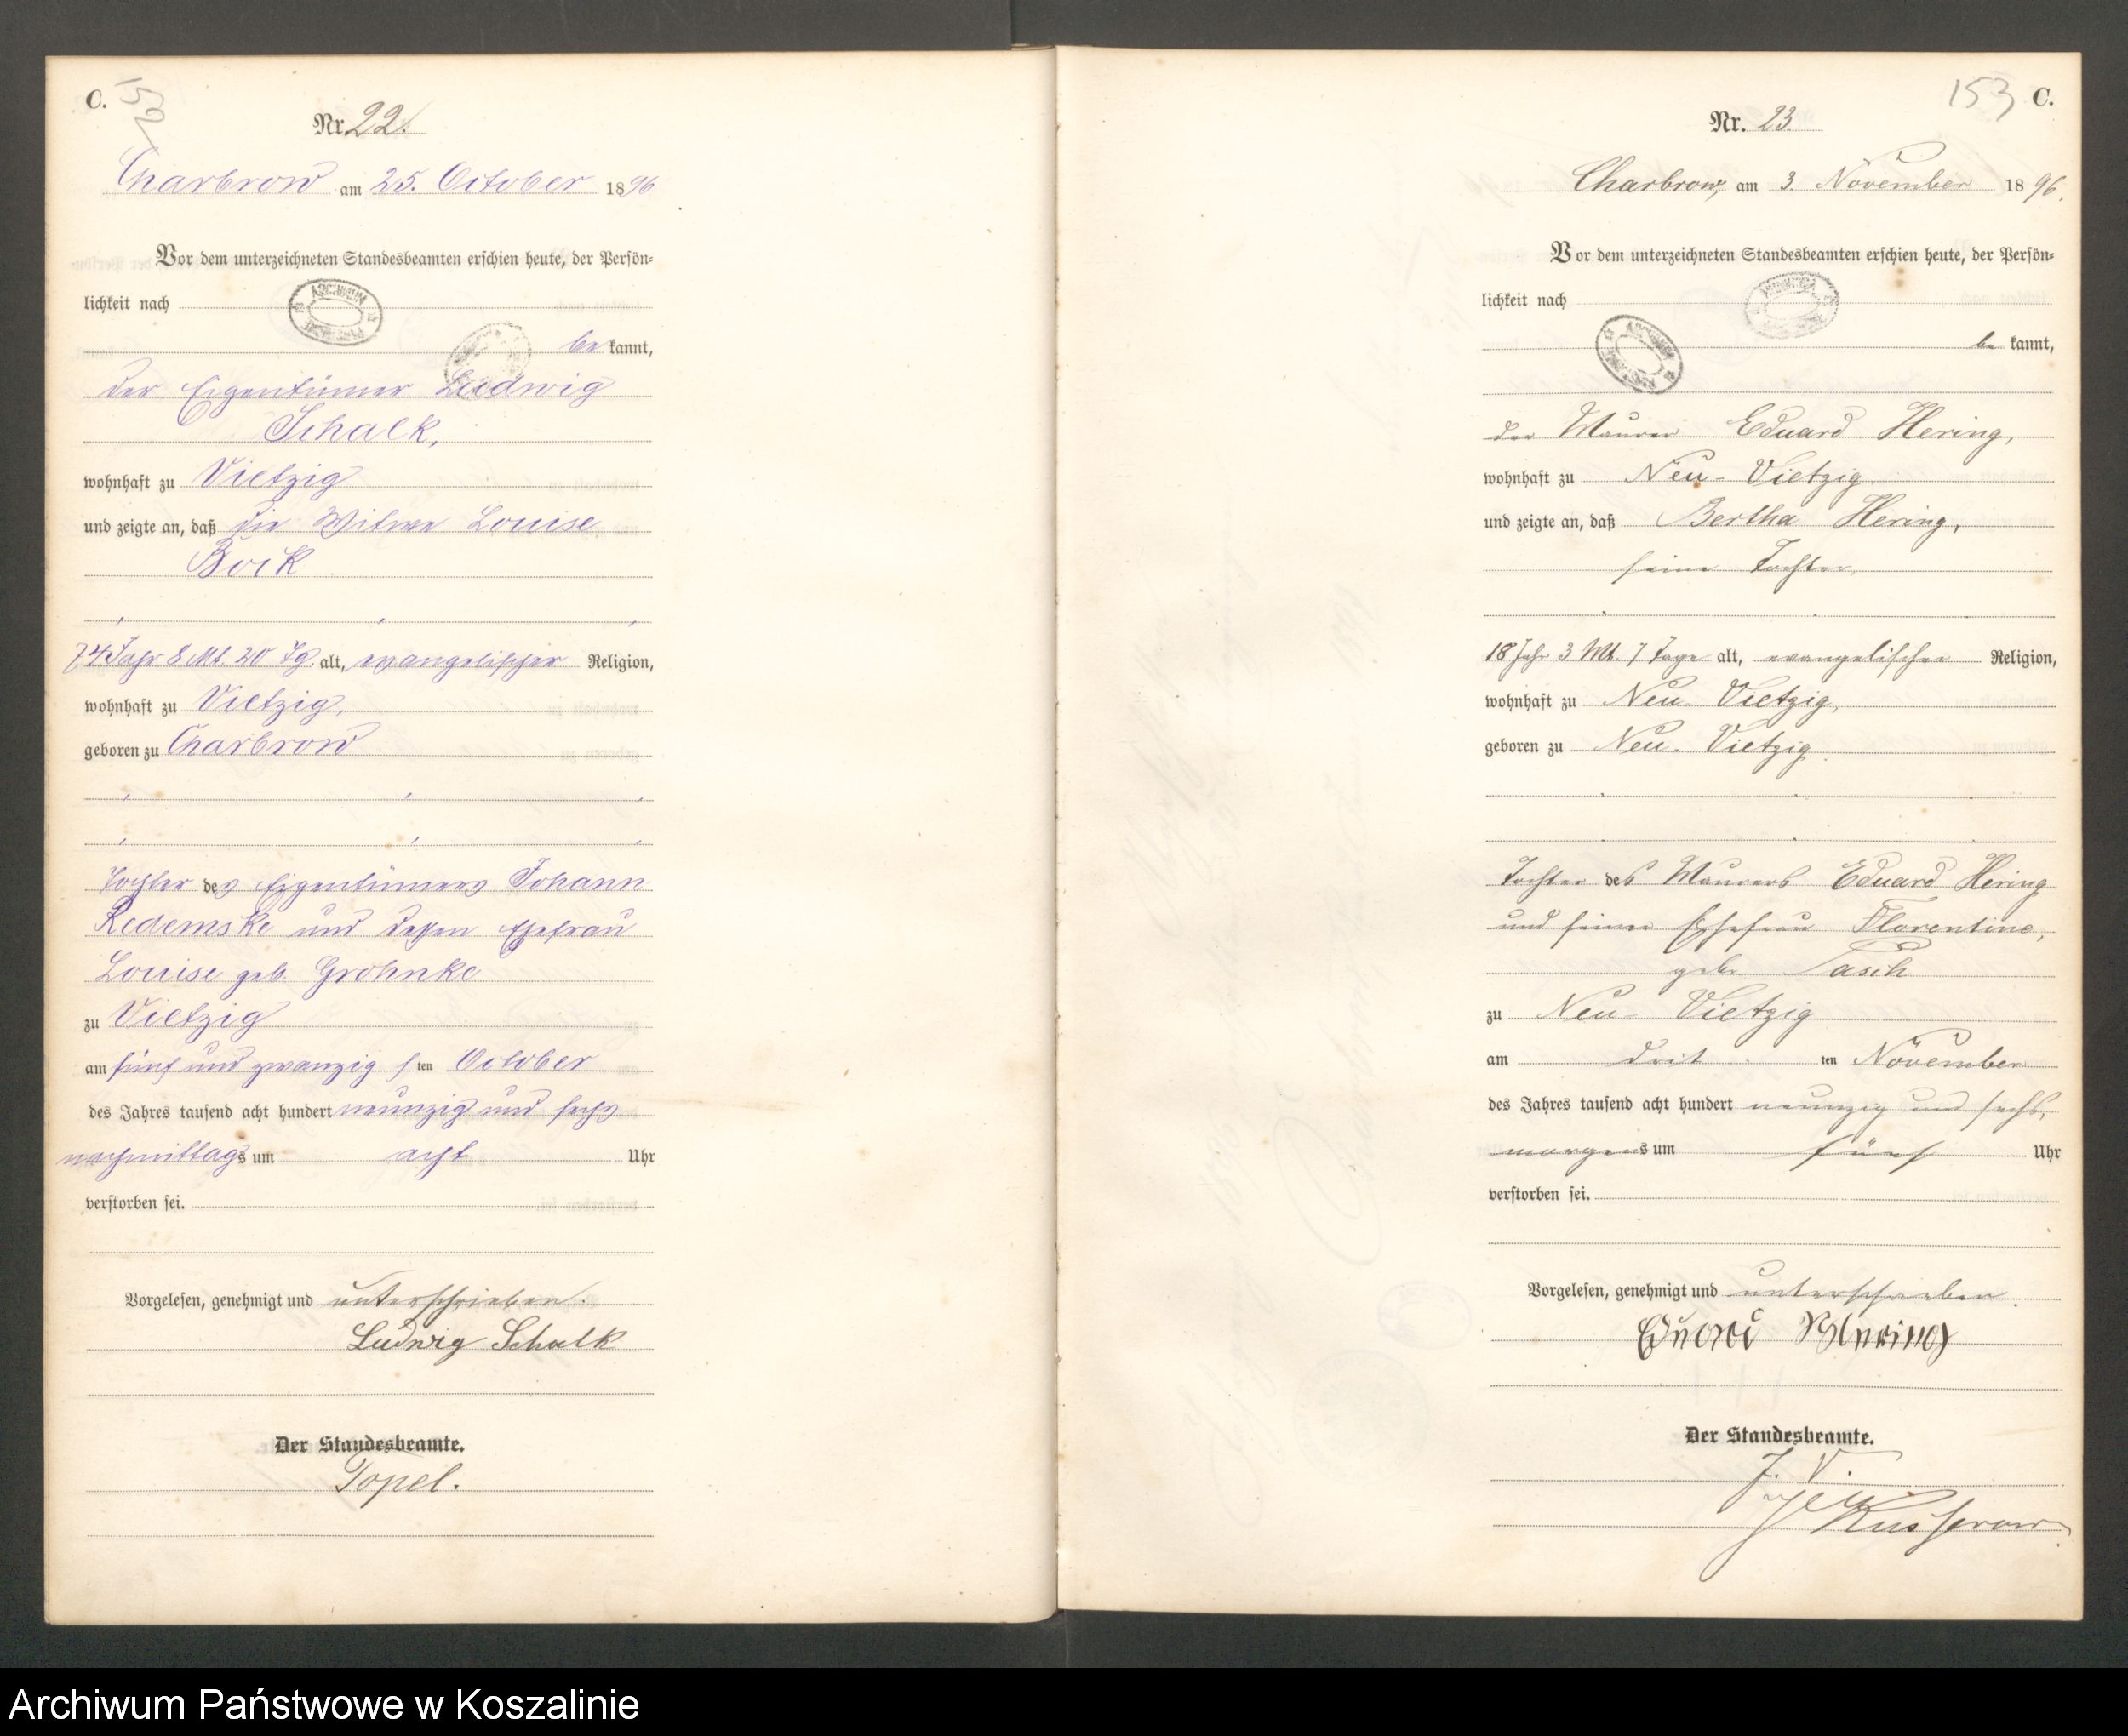 C.
Nr. 22.
Charbrow am 25. October 1896
Vor dem unterzeichneten Standesbeamten erschien heute, der Persön=
lichkeit nach
be kannt,
der Eigentümer Ludwig
Schalk,
wohnhaft zu Vietzig
und zeigte an, daß die Witwe Louise
Bock
74 Jahr 8 Mt. 20 Tg. alt, evangelischer Religion,
wohnhaft zu Vietzig,
geboren zu Charbrow
Tochter des Eigentümers Johann
Redemske und dessen Ehefrau
Louise geb. Grohnke
zu Vietzig
am fünf und zwanzig sten October
des Jahres tausend acht hundert neunzig und sechs
nachmittags um acht Uhr
verstorben sei.
Vorgelesen, genehmigt und unterschrieben.
Ludwig Schalk
Der Standesbeamte.
Topel.
153 C.
Nr. 23.
Charbrow, am 3. November 1896.
Vor dem unterzeichneten Standesbeamten erschien heute, der Persön=
lichkeit nach
be kannt,
der Maurer Eduard Hering,
wohnhaft zu Neu-Vietzig
und zeigte an, daß Bertha Hering,
seine Tochter,
18 Jahr 3 Mt. 7 Tage alt, evangelischer Religion,
wohnhaft zu Neu-Vietzig,
geboren zu Neu-Vietzig.
Tochter des Maurers Eduard Hering
und seiner Ehefrau Florentine,
geb. Pasch
zu Neu-Vietzig
am drit ten November
des Jahres tausend acht hundert neunzig und sechs,
morgens um fünf Uhr
verstorben sei.
Vorgelesen, genehmigt und unterschrieben.
Eduard Hering
Der Standesbeamte.
J. V.
Kusserow.
Archiwum Państwowe w Koszalinie